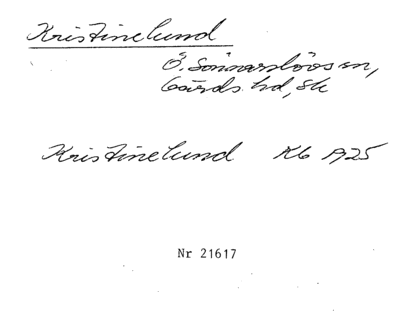 Kristinelund
Ö. Sönnarslövs sn,
Gärds hd, Sk
Kristinelund Kb 1925
Nr 21617